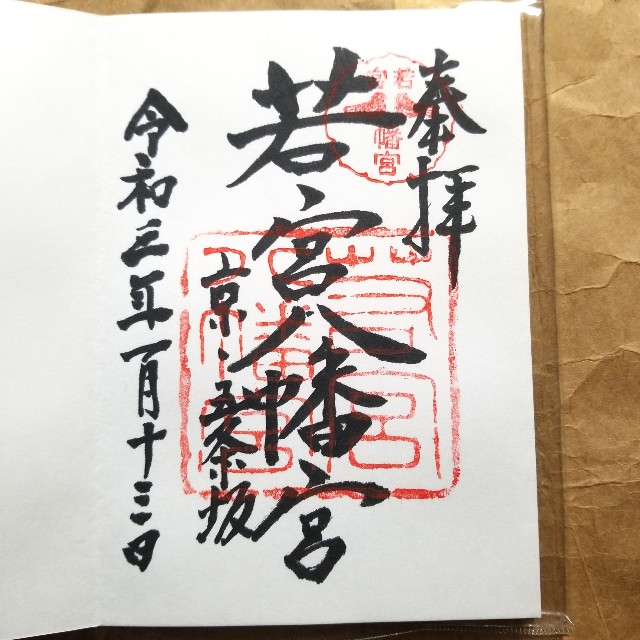 奉拝
若宮八幡宮
京・五条坂
令和三年一月十三日